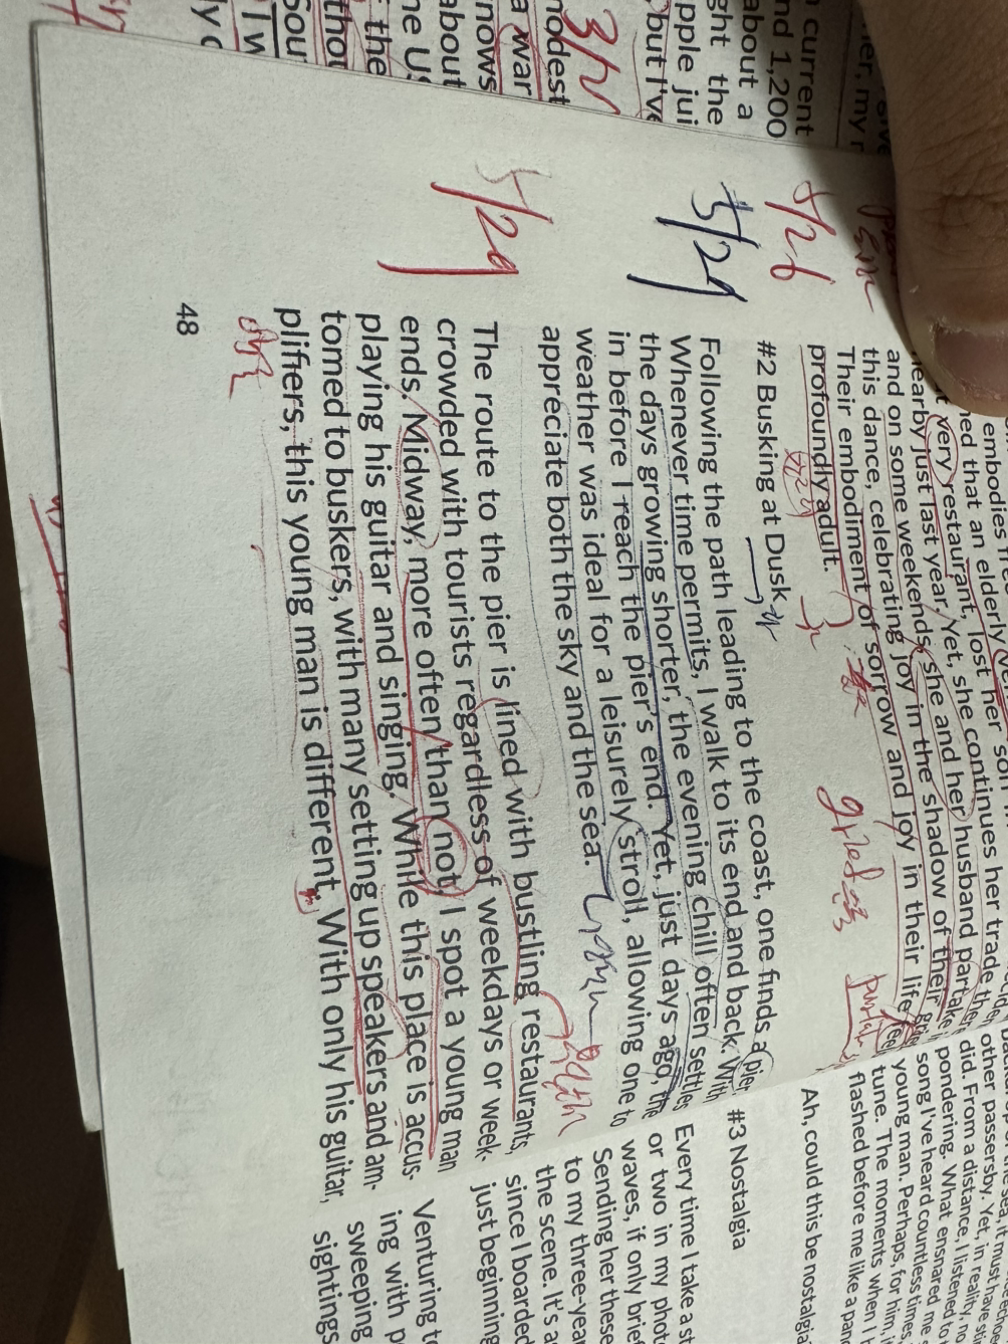 current
nd 1,200
about a
ght the
pple jui
but I've
nodest
a war
nows
about
ne US
the
thou
Sour
I w
3/2
5/26
5/29
5/29
embodies
ned that an elderly
very restaurant, lost her son
nearby just last year. Yet, she continues her trade
and on some weekends, she and her husband partake
this dance, celebrating joy in the shadow of their
Their embodiment of sorrow and joy in their life
profoundly adult.
#2 Busking at Dusk
Following the path leading to the coast, one finds a pier.
Whenever time permits, I walk to its end and back. With
the days growing shorter, the evening chill often settles
in before I reach the pier's end. Yet, just days ago, the
weather was ideal for a leisurely stroll, allowing one to
appreciate both the sky and the sea.
The route to the pier is lined with bustling restaurants,
crowded with tourists regardless of weekdays or week-
ends. Midway, more often than not, I spot a young man
playing his guitar and singing. While this place is accus-
tomed to buskers, with many setting up speakers and am-
plifiers, this young man is different. With only his guitar,
48
other passersby. Yet, in reality,
did. From a distance, I listened to
pondering. What ensnared me
song I've heard countless times,
young man. Perhaps, for him, i
tune. The moments when I
flashed before me like a pa
Ah, could this be nostalgia
#3 Nostalgia
Every time I take a st
or two in my phot
waves, if only brie
Sending her these
to my three-yea
the scene. It's a
since I boarded
just beginning
Venturing t
ing with p
sweeping
sightings